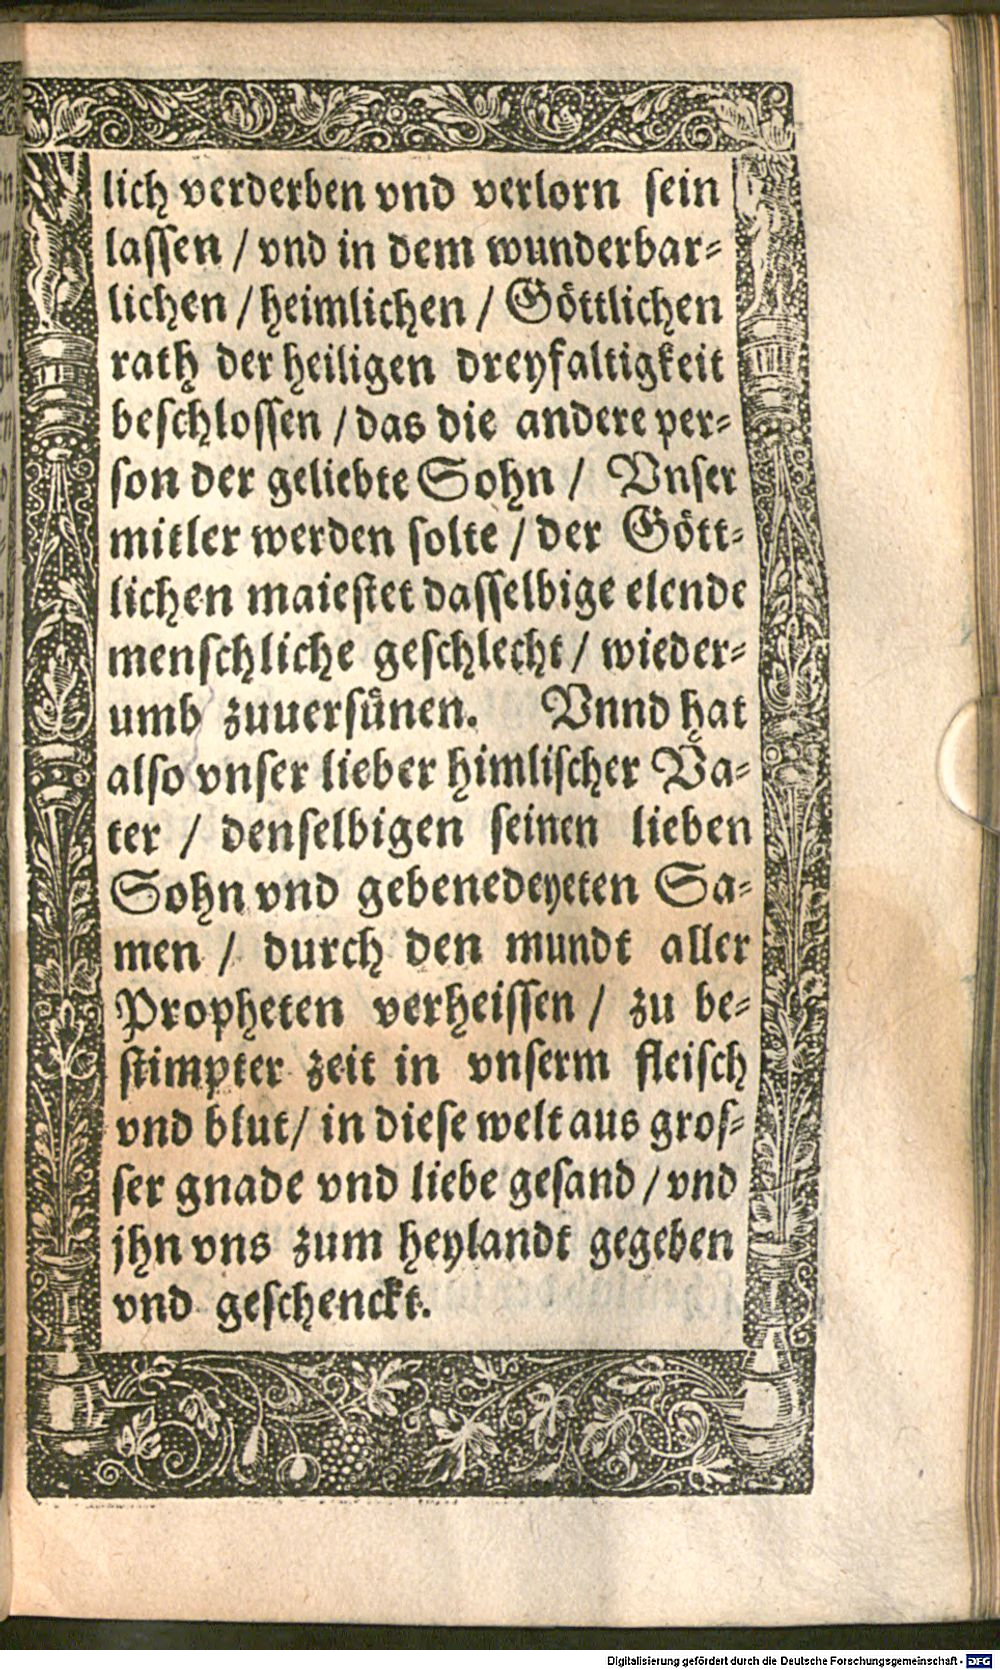 lich verderben vnd verlorn sein
lassen / vnd in dem wunderbar⸗
lichen / heimlichen / Göttlichen
rath der heiligen dreyfaltigkeit
beschlossen / das die andere per⸗
son der geliebte Sohn / Vnser
mitler werden solte / der Gött⸗
lichen maiestet dasselbige elende
menschliche geschlecht / wieder⸗
umb zuuersünen. Vnnd hat
also vnser lieber himlischer Va⸗
ter / denselbigen seinen lieben
Sohn vnd gebenedeyeten Sa⸗
men / durch den mundt aller
Propheten verheissen / zu be⸗
stimpter zeit in vnserm fleisch
vnd blut / in diese welt aus gros⸗
ser gnade vnd liebe gesand / vnd
jhn vns zum heylandt gegeben
vnd geschenckt.
Digitalisierung gefördert durch die Deutsche Forschungsgemeinschaft - DFG